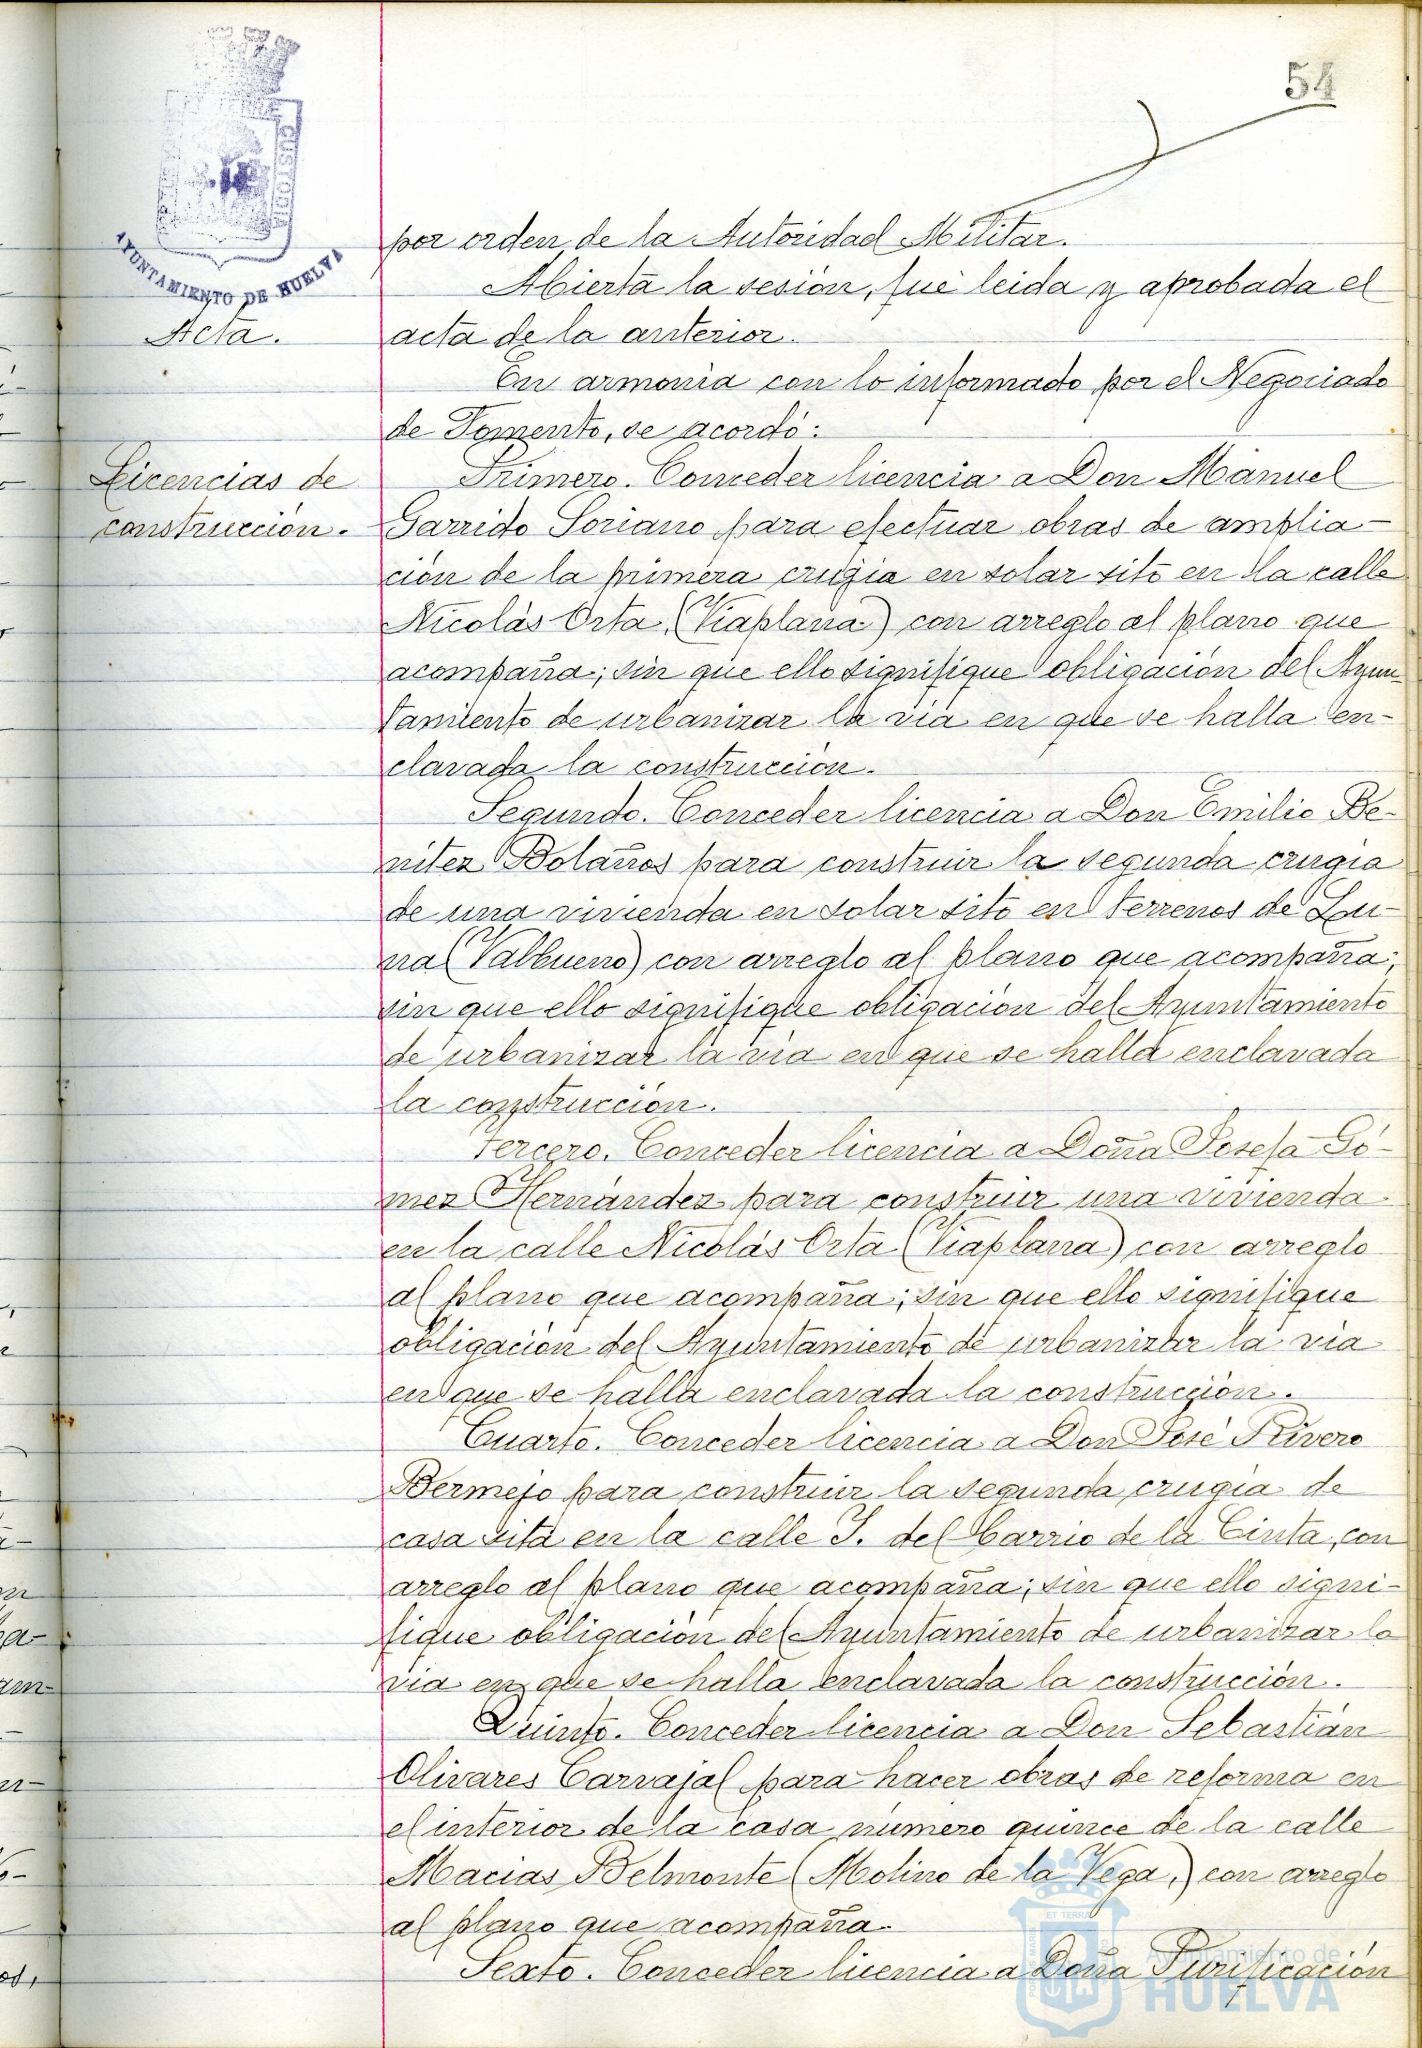 54
AYUNTAMIENTO DE HUELVA
por orden de la Autoridad Militar.
Abierta la sesión, fué leida y aprobada el
Acta.
acta de la anterior.
En armonia con lo informado por el Negociado
de Fomento, se acordó:
Licencias de
construcción.
Primero. Conceder licencia a Don Manuel
Garrido Soriano para efectuar obras de amplia-
ción de la primera crugia en solar sito en la calle
Nicolás Orta (Viaplana) con arreglo al plano que
acompaña; sin que ello signifique obligación del Ayun-
tamiento de urbanizar la via en que se halla en-
clavada la construcción.
Segundo. Conceder licencia a Don Emilio Be-
nitez Bolaños para construir la segunda crugia
de una vivienda en solar sito en terrenos de Lu-
na (Valbueno) con arreglo al plano que acompaña;
sin que ello signifique obligación del Ayuntamiento
de urbanizar la via en que se halla enclavada
la construcción.
Tercero. Conceder licencia a Doña Josefa Gó-
mez Hernández para construir una vivienda
en la calle Nicolás Orta (Viaplana) con arreglo
al plano que acompaña; sin que ello signifique
obligación del Ayuntamiento de urbanizar la via
en que se halla enclavada la construcción.
Cuarto. Conceder licencia a Don José Rivero
Bermejo para construir la segunda crugia de
casa sita en la calle J. del barrio de la Cinta, con
arreglo al plano que acompaña; sin que ello signi-
fique obligación del Ayuntamiento de urbanizar la
via en que se halla enclavada la construcción.
Quinto. Conceder licencia a Don Sebastián
Olivares Carvajal para hacer obras de reforma en
el interior de la casa número quince de la calle
Macias Belmonte (Molino de la Vega,) con arreglo
al plano que acompaña.
Sexto. Conceder licencia a Doña Purificación
Ayuntamiento de
HUELVA